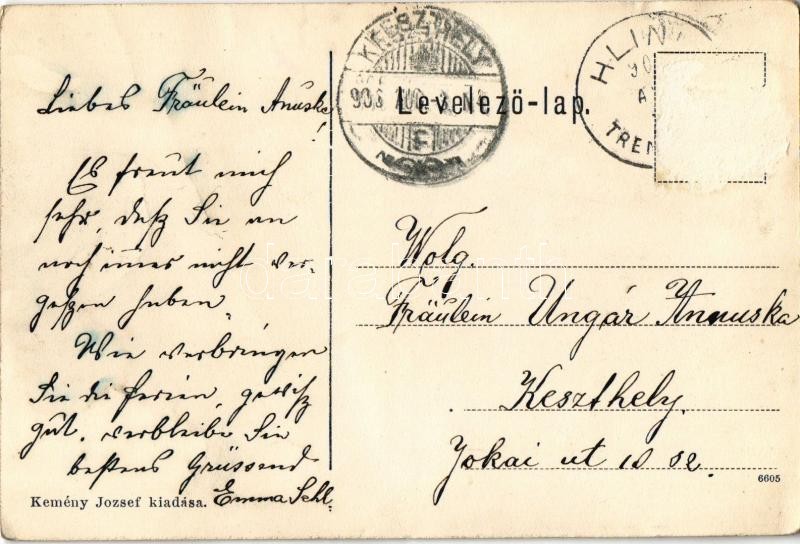 Liebes Fräulein Anuska!
Es freut mich
sehr, daß Sie an
noch immer nicht ver-
gessen haben
Wie verbringen
Sie die Ferien, gewiß
gut. verbleibe Sie
bestens Grüssend
Emma Sehl.
Kemény Jozsef kiadása.
KESZTHELY
906 AUG
F
Levelezö-lap.
HLIN
TREN
Wolg.
Fräulein Ungár Annuska
Keszthely.
Jokai ut
6605